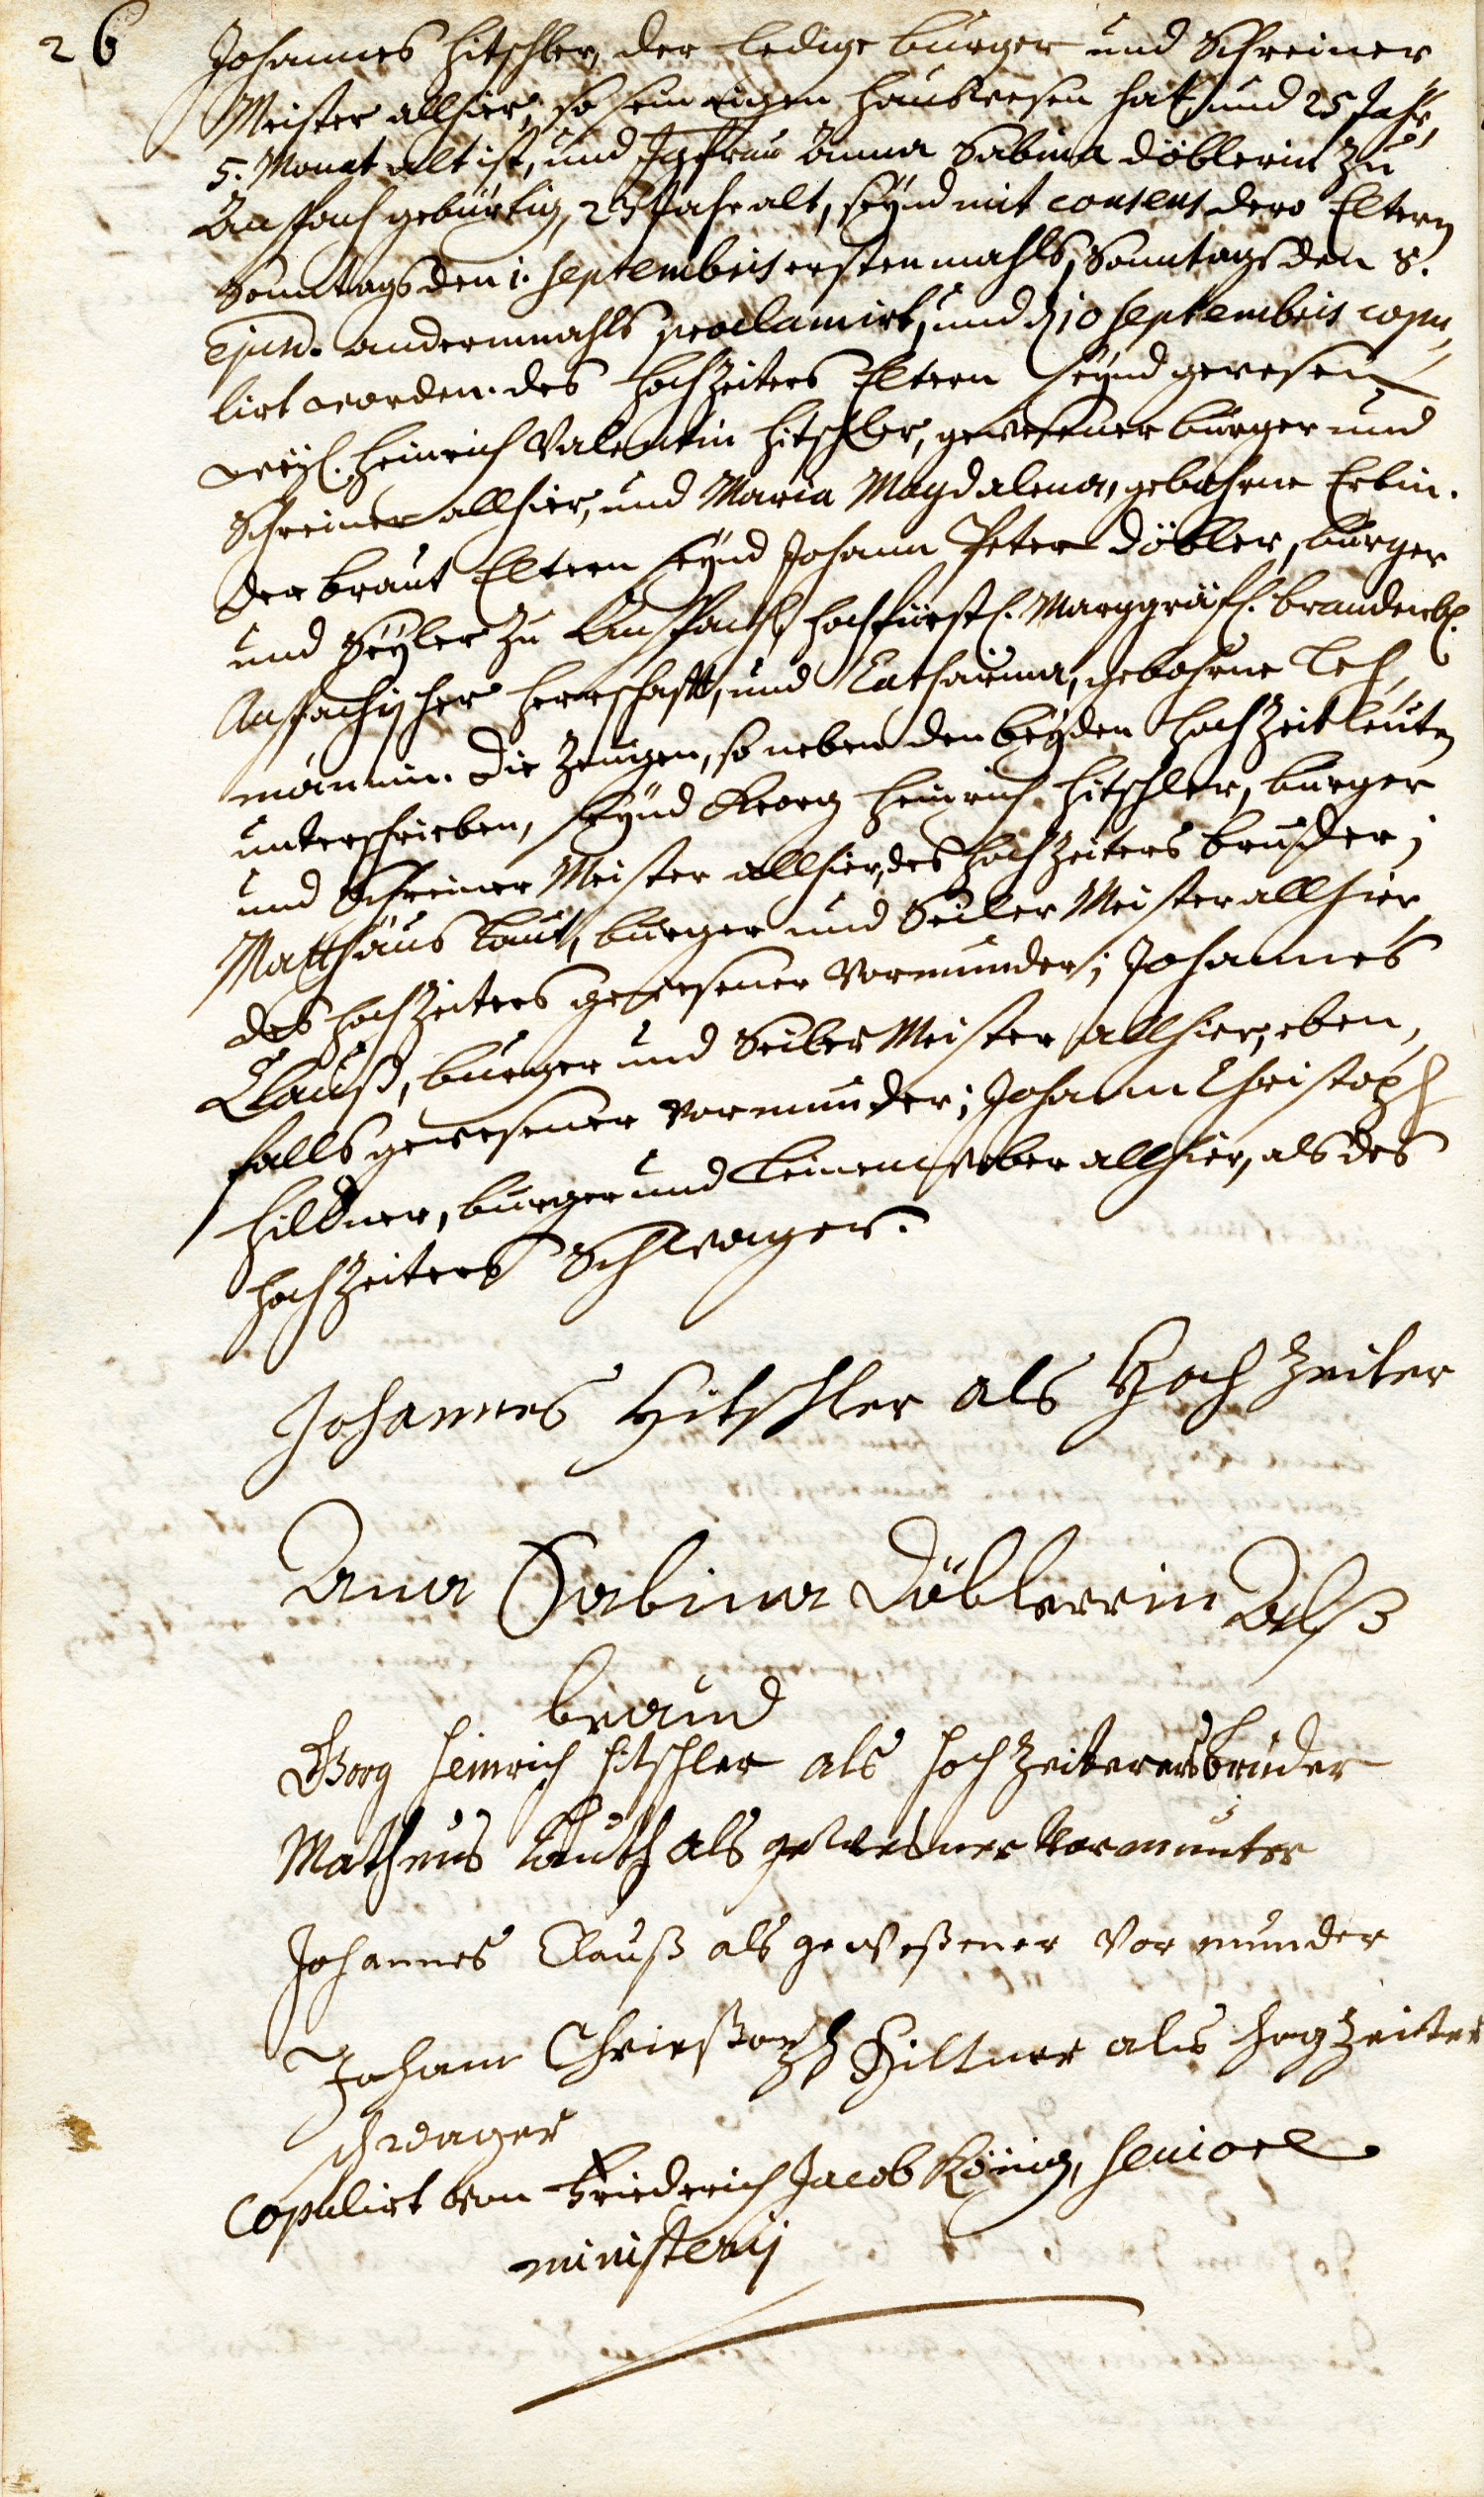 26
Johannes Hitschler, der ledige burger und Schreiner
Meister allhier, so sein eigen Hauswesen hat, und 25 Jahr,
5. Monat alt ist, und Jgfrau Anna Sabina Döblerin zu
Anspach gebürtig, 23 Jahr alt, seynd mit consens dero Eltern
Sonntags den 1. Septembris erstenmahls, Sonntags den 8.
Ejusd. andermmahls proclamirt, und d 10 Septembris copu,
lirt worden. des Hochzeiters Eltern seynd gewesen
weyl. Heinrich Valentin Hitschler, gewesener burger und
Schreiner allhier, und Maria Magdalena, gebohrne Erbin.
der braut Eltern seynd Johann Peter Döbler, burger
und Seyler zu Anspach, Hochfürstl. Marggräfl. brandenb.
Anspachischer Herrschafft, und Catharina, gebohrne Leh,
männin. Die Zeugen, so neben den beyden Hochzeitleuten
unterschrieben, seynd Georg Heinrich Hitschler, burger
und Schreiner Meister allhier, des Hochzeiters bruder;
Matthäus Laut, burger und Seiler Meister allhier,
des Hochzeiters gewesener Vormunder; Johannes
Clauß, burger und Seiler Meister allhier, eben,
falls gewesener Vormunder; Johann Christoph
Hiltner, burger und Leinenweber allhier, als des
Hochzeiters Schwager.
Johannes Hitschler als Hoch Zeiter
Anna Sabina Döblerrin Alß
braud
Georg Heinrich Hitschler als Hoch Zeiterers bruder
Matheus Lauth als gewesner Vormunter
Johannes Clauß als geweßener Vor munder
Johann Chrirstoph Hiltner als Hogzeiter
schwager
Copulirt von Friederich Jacob König, Seniore
ministerij